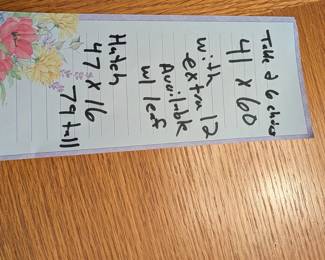 Table & 6 chairs
41 x 60
with
extra 12
Available
w/ leaf
Hutch
47 x 16
79 tall